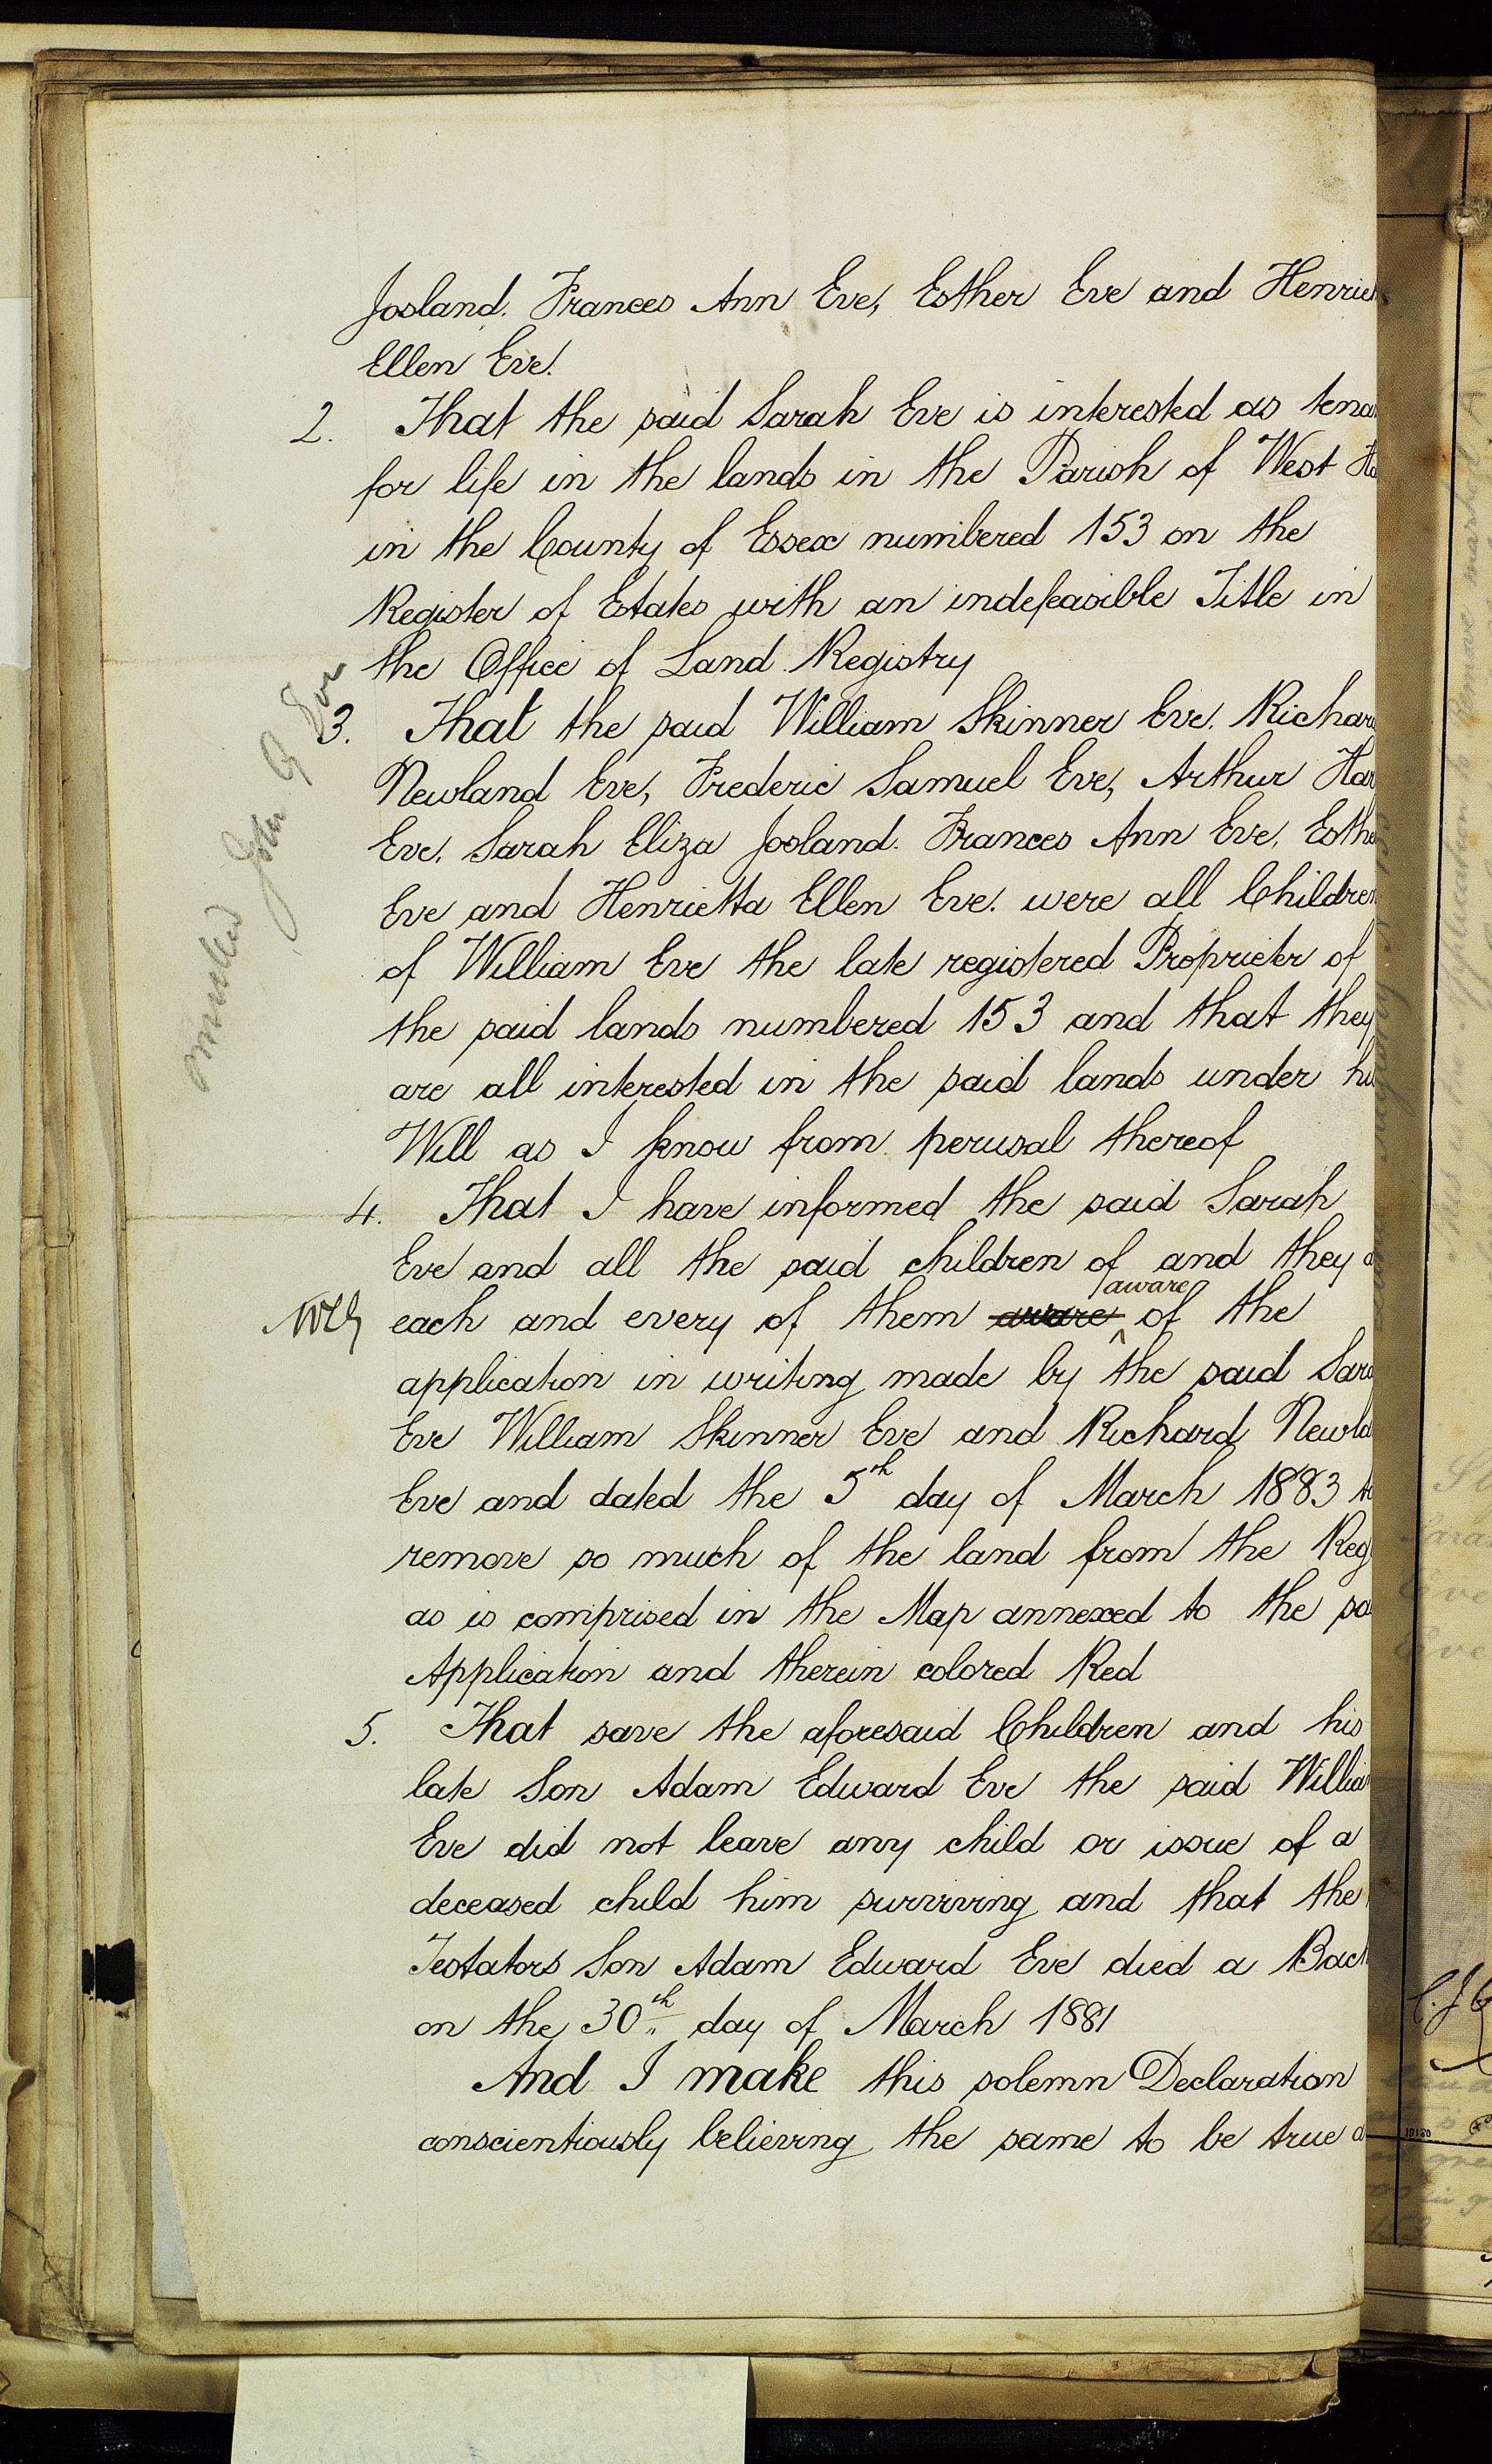 Josland. Frances Ann Eve, Esther Eve and Henriet
Ellen Eve.
2. That the said Sarah Eve is interested as tena
for life in the lands in the Parish of West Ha
in the County of Essex numbered 153 on the
Register of Estates with an indefeasible Title in
the Office of Land Registry
3. That the said William Skinner Eve. Richar
Newland Eve, Frederic Samuel Eve, Arthur Har
Eve. Sarah Eliza Josland. Frances Ann Eve. Esthe
Eve and Henrietta Ellen Eve. were all Children
of William Eve the late registered Proprietor of
the said lands numbered 153 and that they
are all interested in the said lands under his
Will as I know from perusal thereof
4. That I have informed the said Sarah
Eve and all the said children of and they a
aware
each and every of them aware of the
application in writing made by the said Sara
Eve William Skinner Eve and Richard Newla
Eve and dated the 5th day of March 1883 to
remove so much of the land from the Reg
as is comprised in the Map annexed to the sa
Application and therein colored Red
5. That save the aforesaid Children and his
late Son Adam Edward Eve the said William
Eve did not leave any child or issue of a
deceased child him surviving and that the
Testators Son Adam Edward Eve died a Bach
on the 30th day of March 1881
And I make this solemn Declaration
conscientiously believing the same to be true a